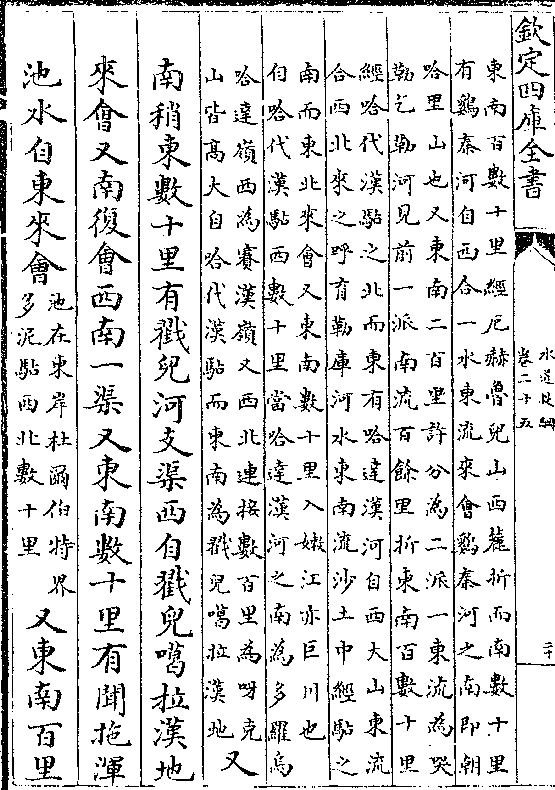 欽定四庫全書
水道提綱
卷二十五
東南百數十里經厄赫魯兒山西麓折而南數十里
有鷄秦河自西合一水東流來會鷄秦河之南即朝
哈里山也又東南二百里許分為二派一東流為哭
勒乞勒河見前一派南流百餘里折東南百數十里
經哈代漢點之北而東有哈達漢河自西大山東流
合西北來之呼育勒庫河水東南流沙土中經點之
南而東北來會又東南數十里入嫩江亦巨川也
自哈代漢點西數十里當哈達漢河之南為多羅烏
哈達嶺西為賽漢嶺又西北連接數百里為呀克
山皆高大自哈代漢點而東南為戳兒噶拉漢地
又
南稍東數十里有戳兒河支渠西自戳兒噶拉漢地
來會又南復會西南一渠又東南數十里有聞拖渾
池水自東來會
池在東岸杜爾伯特界
多泥點西北數十里
又東南百里